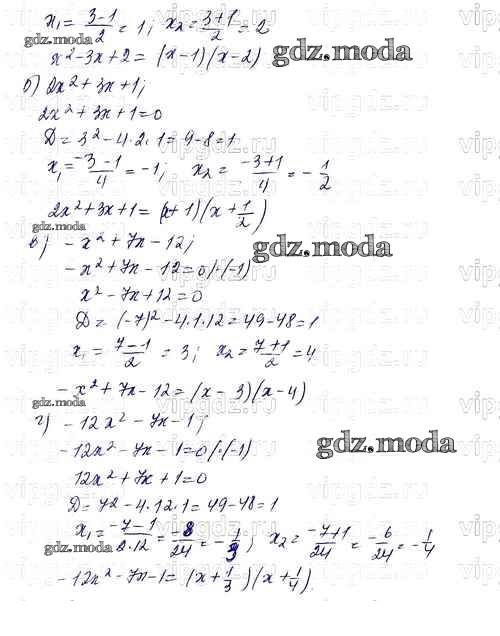 x₁ = (3-1)/2 = 1; x₂ = (3+1)/2 = 2
gdz.moda
x²-3x+2 = (x-1)(x-2)
gdz.moda
б) 2x²+3x+1;
2x²+3x+1=0
D = 3²-4·2·1 = 9-8 = 1
x₁ = (-3-1)/4 = -1; x₂ = (-3+1)/4 = -1/2
2x²+3x+1 = (x+1)(x+1/2)
gdz.moda
в) -x²+7x-12;
gdz.moda
-x²+7x-12=0/·(-1)
x²-7x+12=0
D = (-7)²-4·1·12 = 49-48 = 1
x₁ = (7-1)/2 = 3; x₂ = (7+1)/2 = 4
-x²+7x-12 = (x-3)(x-4)
gdz.moda
г) -12x²-7x-1;
gdz.moda
-12x²-7x-1=0/·(-1)
12x²+7x+1=0
D = 7²-4·12·1 = 49-48 = 1
x₁ = (-7-1)/(2·12) = -8/24 = -1/3; x₂ = (-7+1)/24 = -6/24 = -1/4
gdz.moda
-12x²-7x-1 = (x+1/3)(x+1/4)